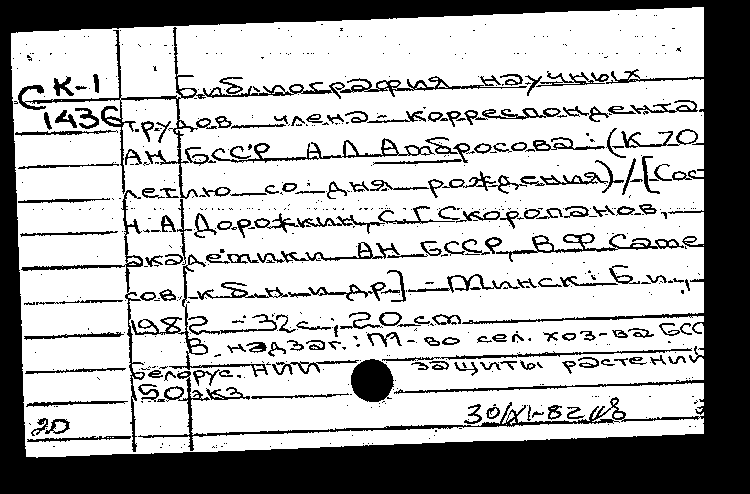 С К-1
1436
Библиография научных
трудов члена-корреспондента
АН БССР А Л Амбросова: (К 70
летию со дня рождения)/[Сос
Н А Дорожкин, С.Г Скоропанов,
академики АН БССР, В Ф Само
сов, к б. н и др] - Минск: Б и,
1982 - 32 с; 20 см.
В надзаг.: М-во сел. хоз-ва БСС
Белорус. НИИ защиты растений
150 экз
20
30/XI-82